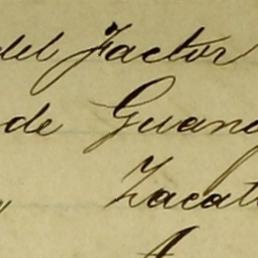 del Factor
de Guang
Zacat